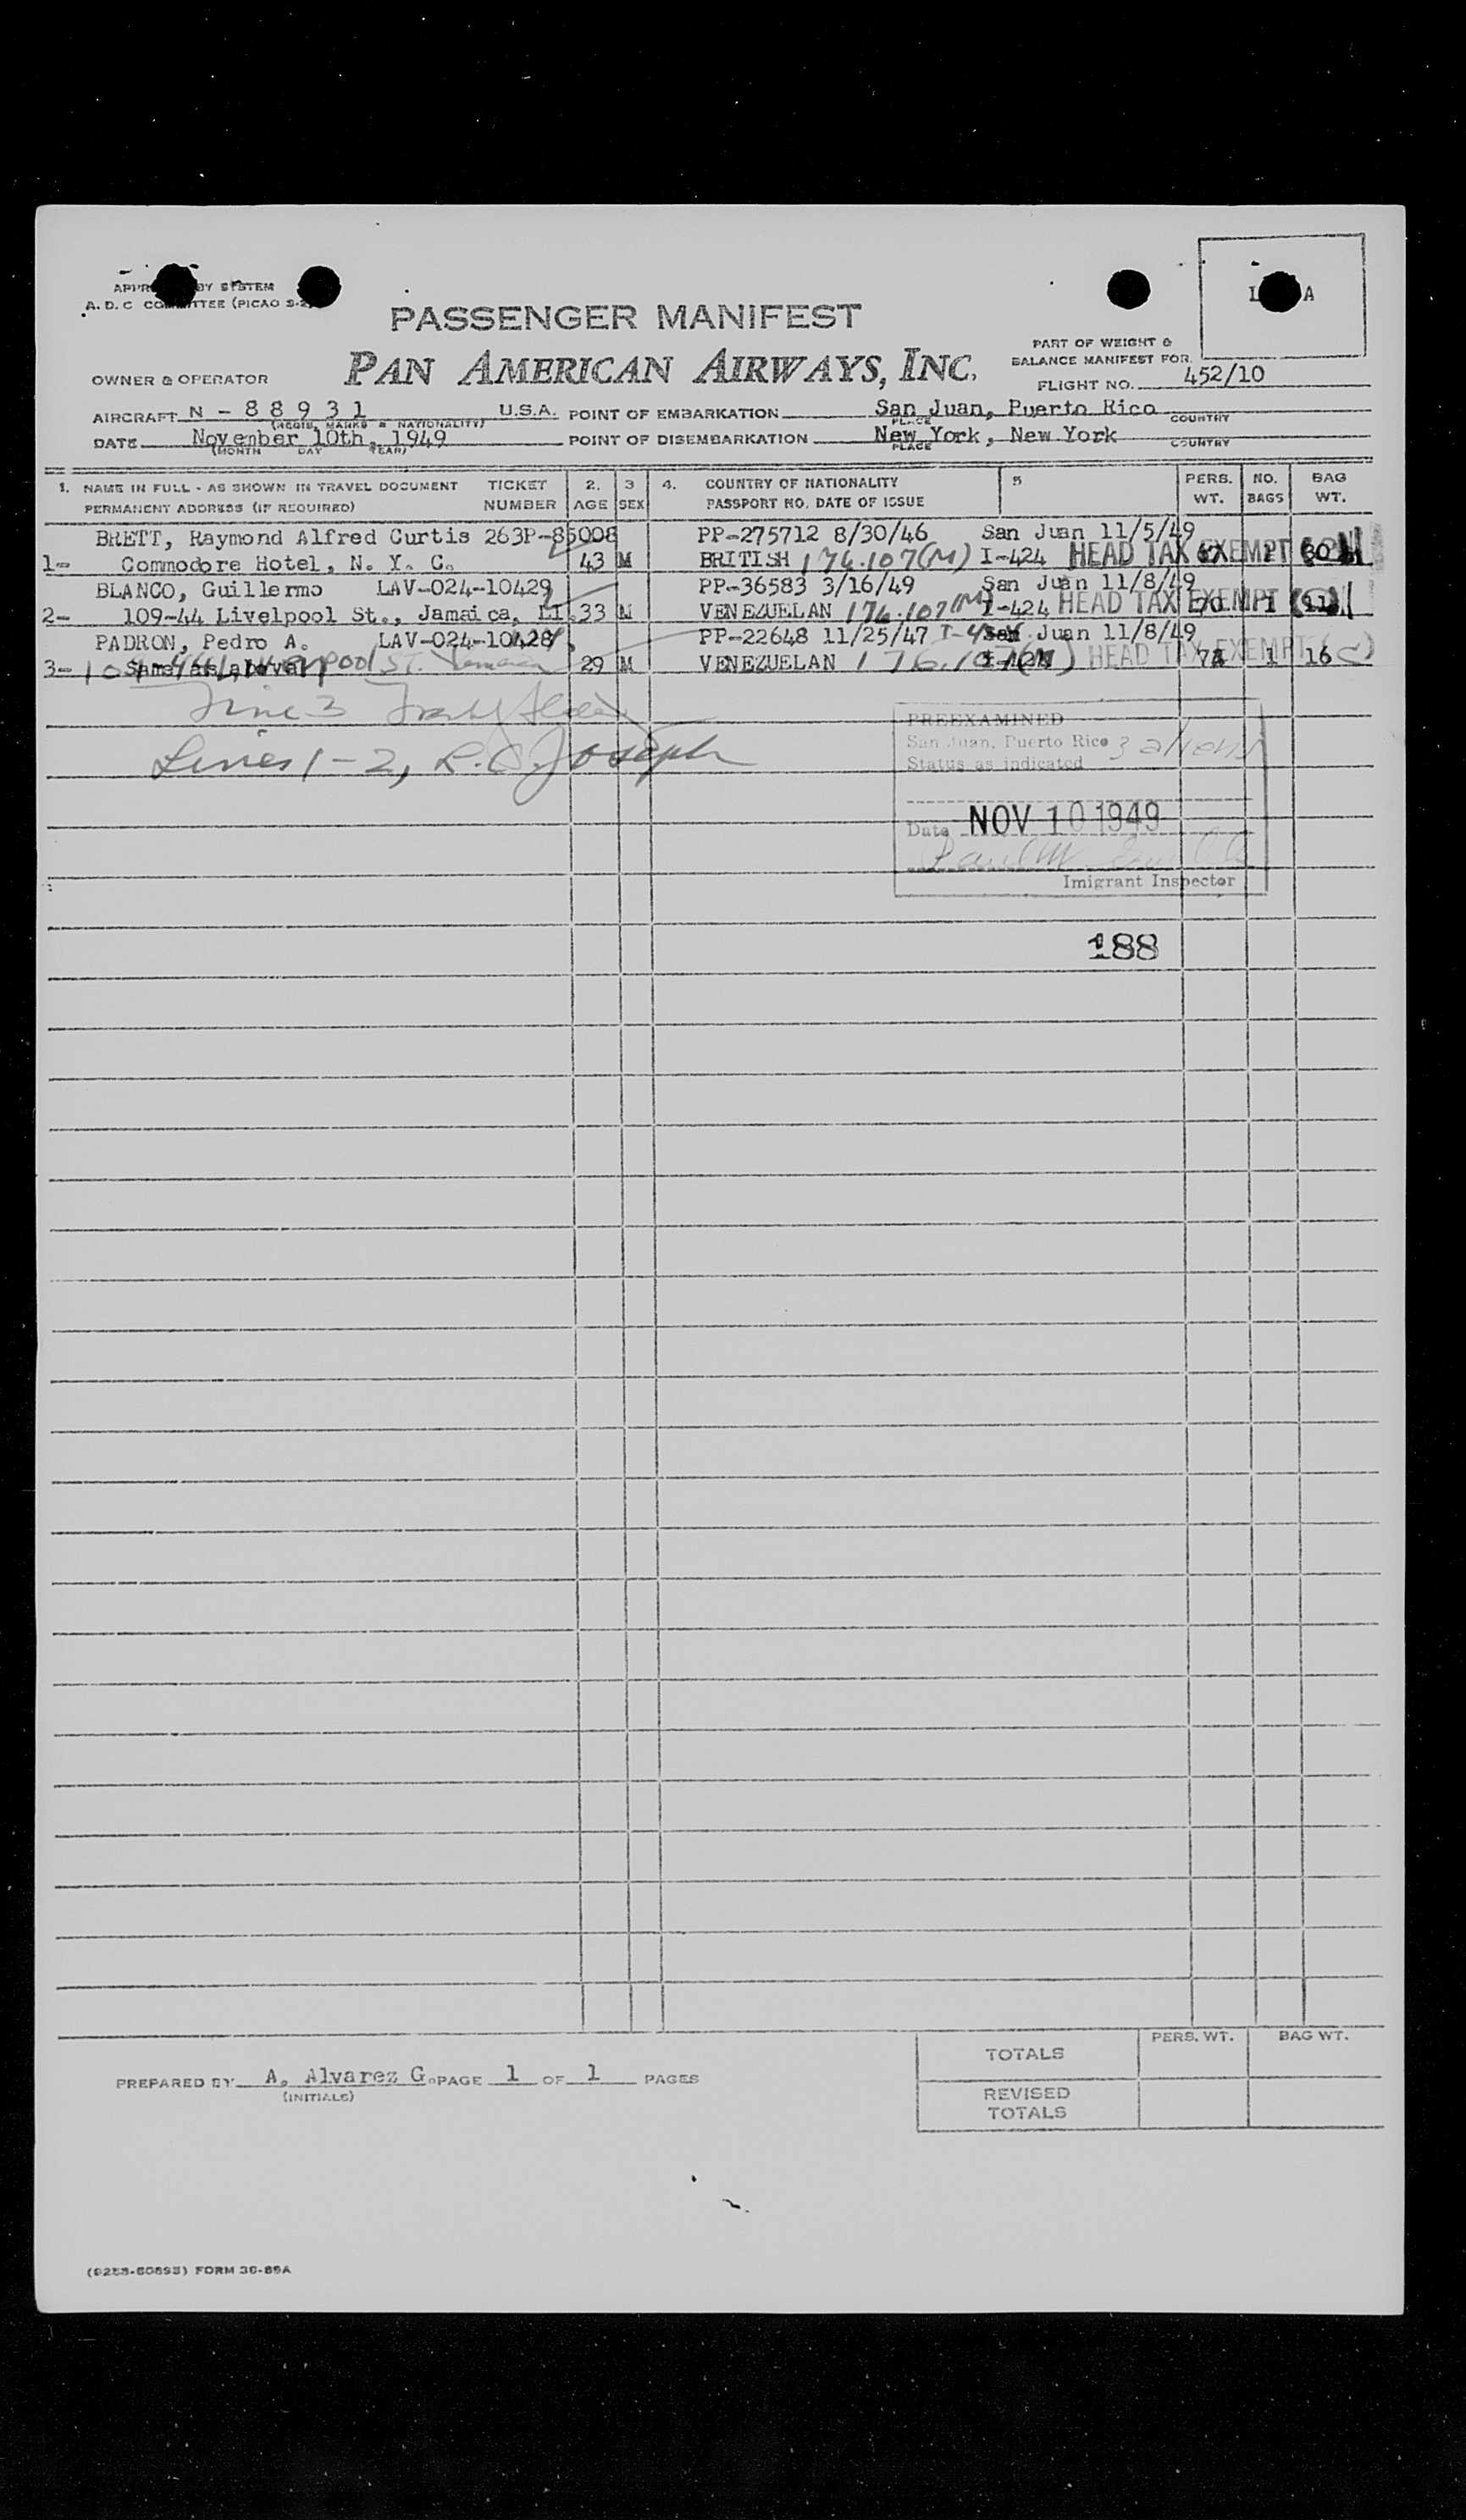 APPR BY SYSTEM
A. D. C COMMITTEE (PICAO S-2
PASSENGER MANIFEST
L A
PAN AMERICAN AIRWAYS, INC.
PART OF WEIGHT &
BALANCE MANIFEST FOR
OWNER & OPERATOR
FLIGHT NO. 452/10
AIRCRAFT N - 8 8 9 3 1 U.S.A. POINT OF EMBARKATION San Juan, Puerto Rico COUNTRY
(REGIS. MARKS & NATIONALITY) PLACE
DATE November 10th, 1949 POINT OF DISEMBARKATION New York, New York COUNTRY
(MONTH DAY YEAR) PLACE
1. NAME IN FULL - AS SHOWN IN TRAVEL DOCUMENT TICKET 2. 3 4. COUNTRY OF NATIONALITY 5 PERS. NO. BAG
PERMANENT ADDRESS (IF REQUIRED) NUMBER AGE SEX PASSPORT NO. DATE OF ISSUE WT. BAGS WT.
BRETT, Raymond Alfred Curtis 263P-85008 PP-275712 8/30/46 San Juan 11/5/49
1- Commodore Hotel, N. Y. C. 43 M BRITISH 176.107(M) I-424 HEAD TAX EXEMPT
BLANCO, Guillermo LAV-024-10429 PP-36583 3/16/49 San Juan 11/8/49
2- 109-44 Livelpool St., Jamaica, LI. 33 M VENEZUELAN 176.107(M) I-424 HEAD TAX EXEMPT 70 1 11
PADRON, Pedro A. LAV-024-10428 PP-22648 11/25/47 San Juan 11/8/49
3- Same as above 29 M VENEZUELAN 176.107(M) HEAD TAX EXEMPT 1 16
Line 3
Lines 1-2, R. C. Joseph
PREEXAMINED
San Juan, Puerto Rico 3 aliens
Status as indicated
Date NOV 10 1949
Imigrant Inspector
188
TOTALS PERS. WT. BAG WT.
PREPARED BY A. Alvarez G. PAGE 1 OF 1 PAGES
(INITIALS)
REVISED
TOTALS
FORM 36-89A